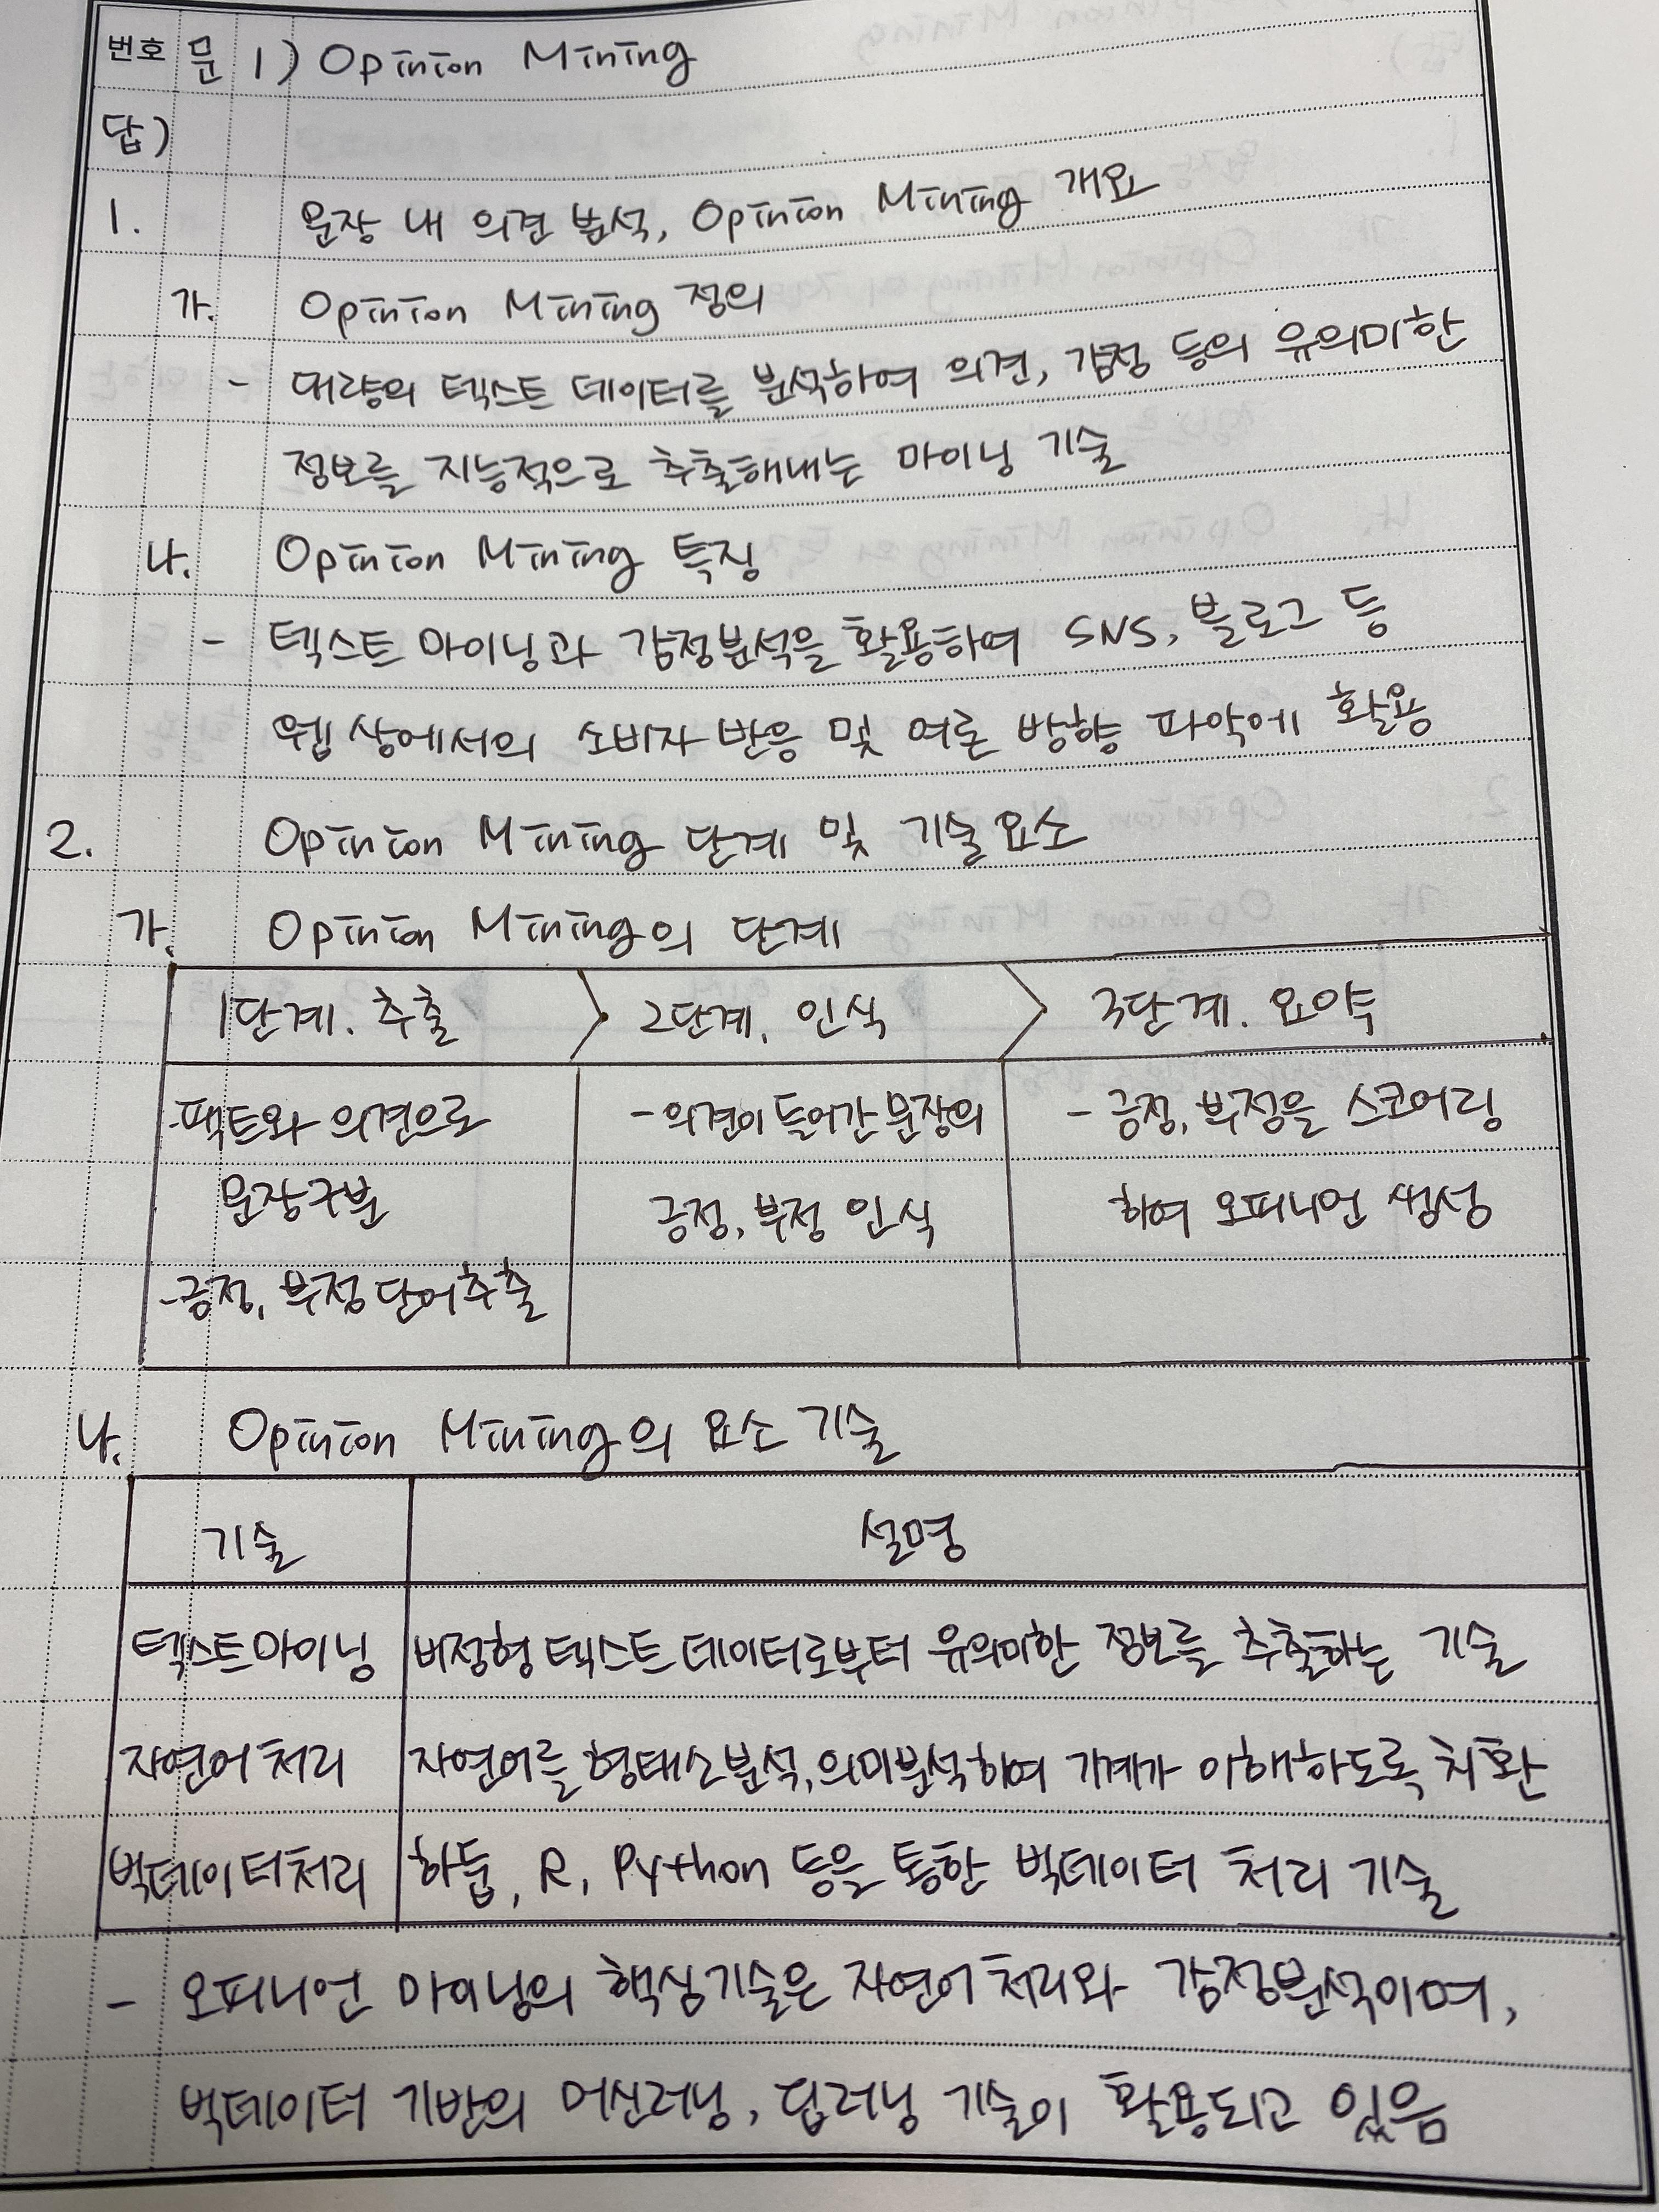 번호 문 1) Opinion Mining
답)
1. 문장 내 의견 분석, Opinion Mining 개요
가. Opinion Mining 정의
- 대량의 텍스트 데이터를 분석하여 의견, 감정 등의 유의미한
정보를 지능적으로 추출해내는 마이닝 기술
나. Opinion Mining 특징
- 텍스트 마이닝과 감정분석을 활용하여 SNS, 블로그 등
웹 상에서의 소비자 반응 및 여론 방향 파악에 활용
2. Opinion Mining 단계 및 기술요소
가. Opinion Mining의 단계
1단계. 추출 > 2단계. 인식 > 3단계. 요약
-팩트와 의견으로 -의견이 들어간 문장의 -긍정, 부정을 스코어링
문장구분 긍정, 부정 인식 하여 오피니언 생성
-긍정, 부정 단어추출
나. Opinion Mining의 요소 기술
기술 설명
텍스트마이닝 비정형 텍스트 데이터로부터 유의미한 정보를 추출하는 기술
자연어 처리 자연어를 형태소분석, 의미분석하여 기계가 이해하도록 치환
빅데이터처리 하둡, R, Python 등을 통한 빅데이터 처리 기술
- 오피니언 마이닝의 핵심기술은 자연어 처리와 감정분석이며,
빅데이터 기반의 머신러닝, 딥러닝 기술이 활용되고 있음